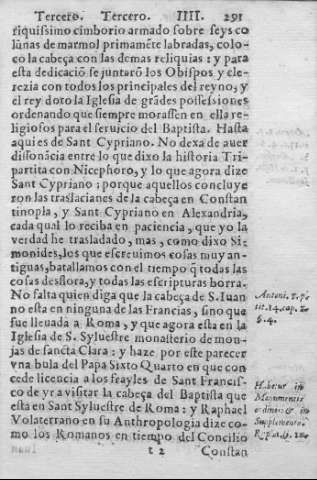 Tercero. Tercero. IIII. 291
riquissimo cimborio armado sobre seys co
lũnas de marmol primamẽte labradas, colo-
co la cabeça con las demas reliquias: y para
esta dedicaciõ se juntarõ los Obispos y cle-
rezia con todos los principales del reyno, y
el rey doto la Iglesia de grãdes possessiones
ordenando que siempre morassen en ella re-
ligiosos para el seruicio del Baptista. Hasta
aqui es de Sant Cypriano. No dexa de auer
dissonãcia entre lo que dixo la historia Tri-
partita con Nicephoro, y lo que agora dize
Sant Cypriano: porque aquellos concluye
ron las traslaciones de la cabeça en Constan
tinopla, y Sant Cypriano en Alexandria,
cada qual lo reciba en paciencia, que yo la
verdad he trasladado, mas, como dixo Si-
monides, los que escreuimos cosas muy an-
tiguas, batallamos con el tiempo q̃ todas las
cosas desflora, y todas las escripturas borra.
No falta quien diga que la cabeça de S. Iuan
no esta en ninguna de las Francias, sino que
fue lleuada a Roma, y que agora esta en la
Iglesia de S. Syluestre monasterio de mon-
jas de sancta Clara: y haze por este parecer
vna bula del Papa Sixto Quarto en que con
cede licencia a los frayles de Sant Francis-
co de yr a visitar la cabeça del Baptista que
esta en Sant Syluestre de Roma: y Raphael
Volaterrano en su Anthropologia dize co-
mo los Romanos en tiempo del Concilio
t 2 Constan
Antoni. 3. p.
tit. 24. cap.
§. 4.
Habetur in
Monumentis
ordinis: & in
Supplemento.